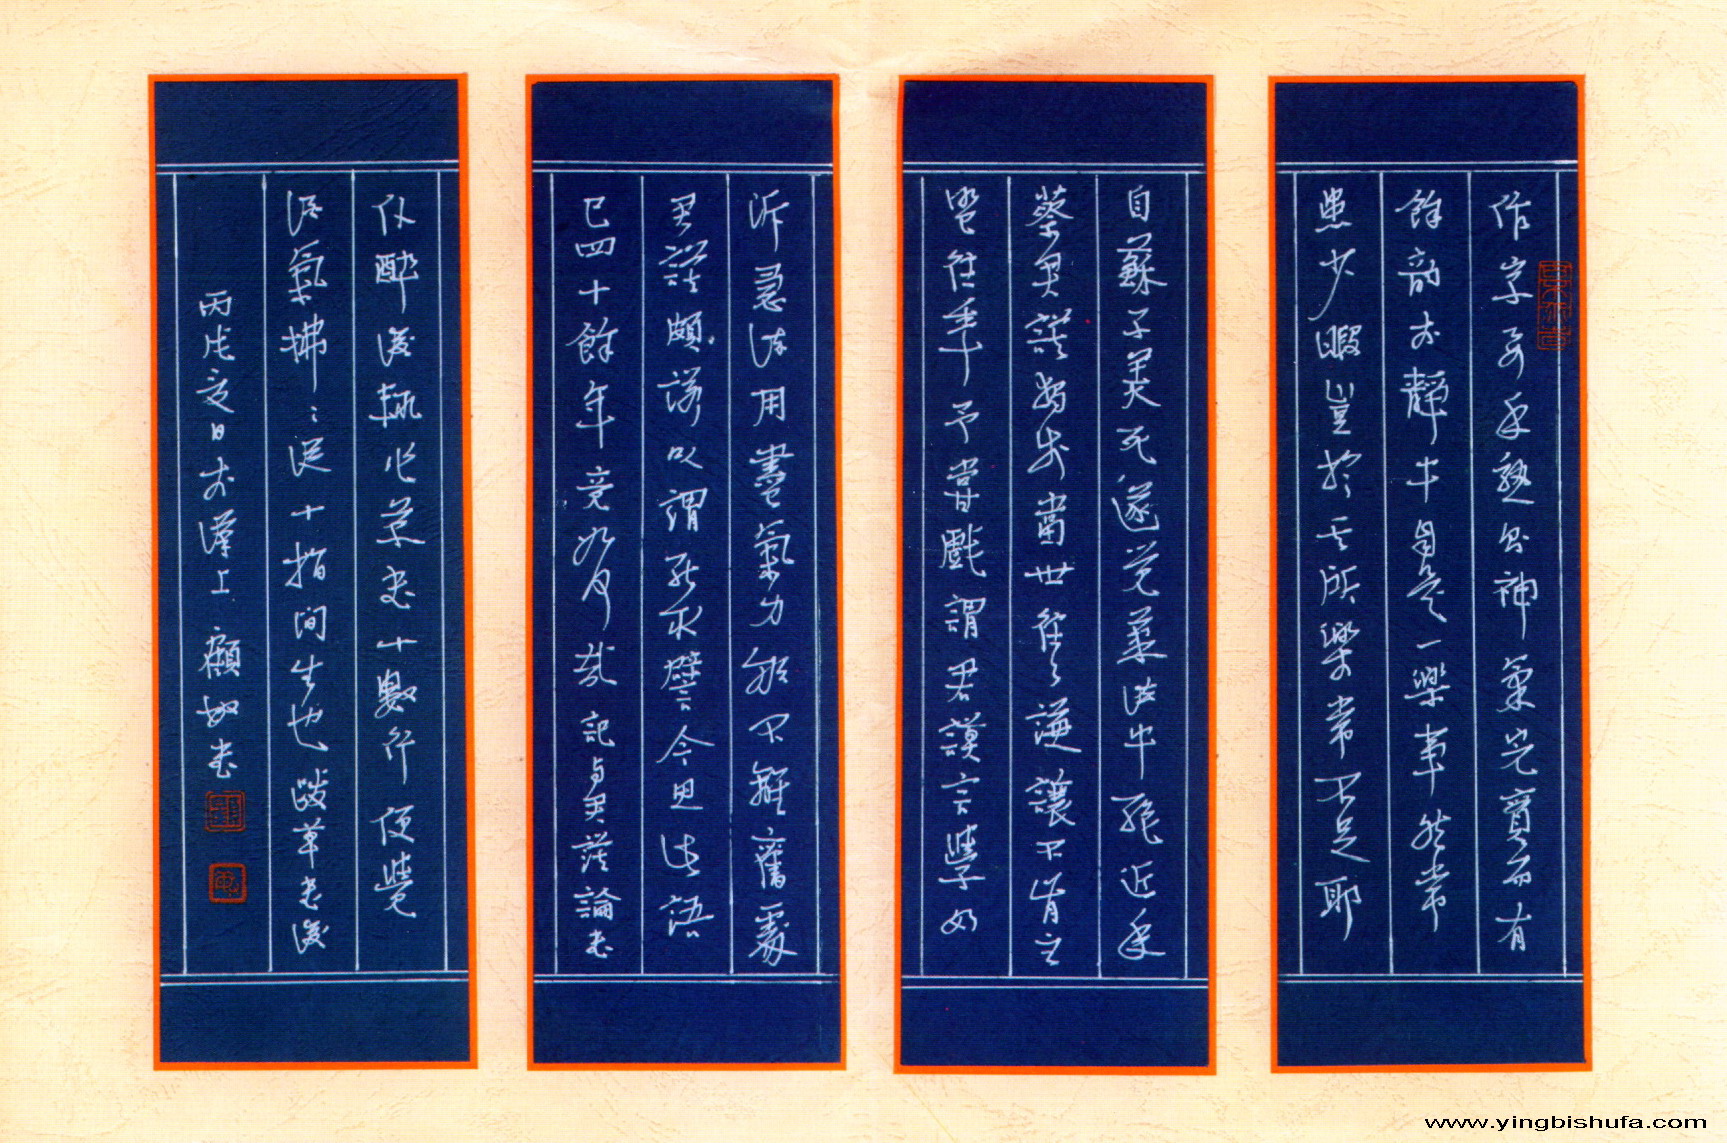 作字要手熟則神氣完實而有
餘韻於靜中自是一樂事然常
患少暇豈於其所樂常不足耶
自蘇子美死遂覺筆法中絕近年
蔡君謨獨步當世往往謙讓不肯主
盟往年予嘗戲謂君謨言學如
泝急流用盡氣力然不離舊處
君謨頗諾以謂能取譬今思此語
已四十餘年竟如何哉 記與君謨論書
仆醉後輒作草書十數行便覺
酒氣拂拂從十指間生也 跋草書後
丙戌夏日於漢上 顧書
www.yingbishufa.com